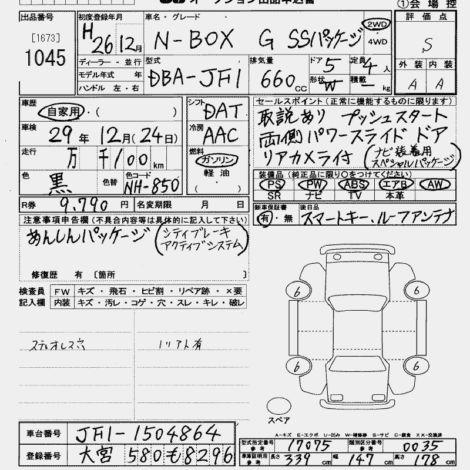 ①会場控
出品番号 [1673] 1045
初度登録年月 H26 12月
車名・グレード N-BOX G SSパッケージ 2WD 4WD
評価点 S
ディーラー・並行
モデル年式 年
ハンドル 左・右
型式 DBA-JF1
排気量 660cc
ドア 5
形状 W
定員 4人
積量 - kg
外装 内装
A A
車歴 自家用・( )
車検 29年12月(24日)
走行 万 千100km
色 黒 色替 色コード NH-850
シフト DAT
冷房 AAC
燃料 ガソリン・( ) 軽油
セールスポイント(正常に機能するものに限ります)
取説あり プッシュスタート
両側パワースライドドア
リアカメラ付(ナビ装着用スペシャルパッケージ)
装備品(純正品に限り○をつけてください)
PS PW ABS エアB AW
SR ナビ TV 本革
R券 9,790円 名変期限 月 日
新車保証書 有・無
後日品 スマートキー、ルーフアンテナ
注意事項申告欄(不具合内容等は具体的に記入して下さい)
あんしんパッケージ(シティブレーキアクティブシステム)
修復歴 有(箇所 )
検査員記入欄
FW キズ・飛石・ヒビ割・リペア跡・×要
内装 キズ・汚レ・コゲ・穴・スレ・キレ・破レ
6 6
6 6
スペア
車台番号 JF1-1504864
登録番号 大宮 580 も 8296
型式指定番号 17075
類別区分番号 0035
長さ 339cm 幅 147cm 高さ 178cm